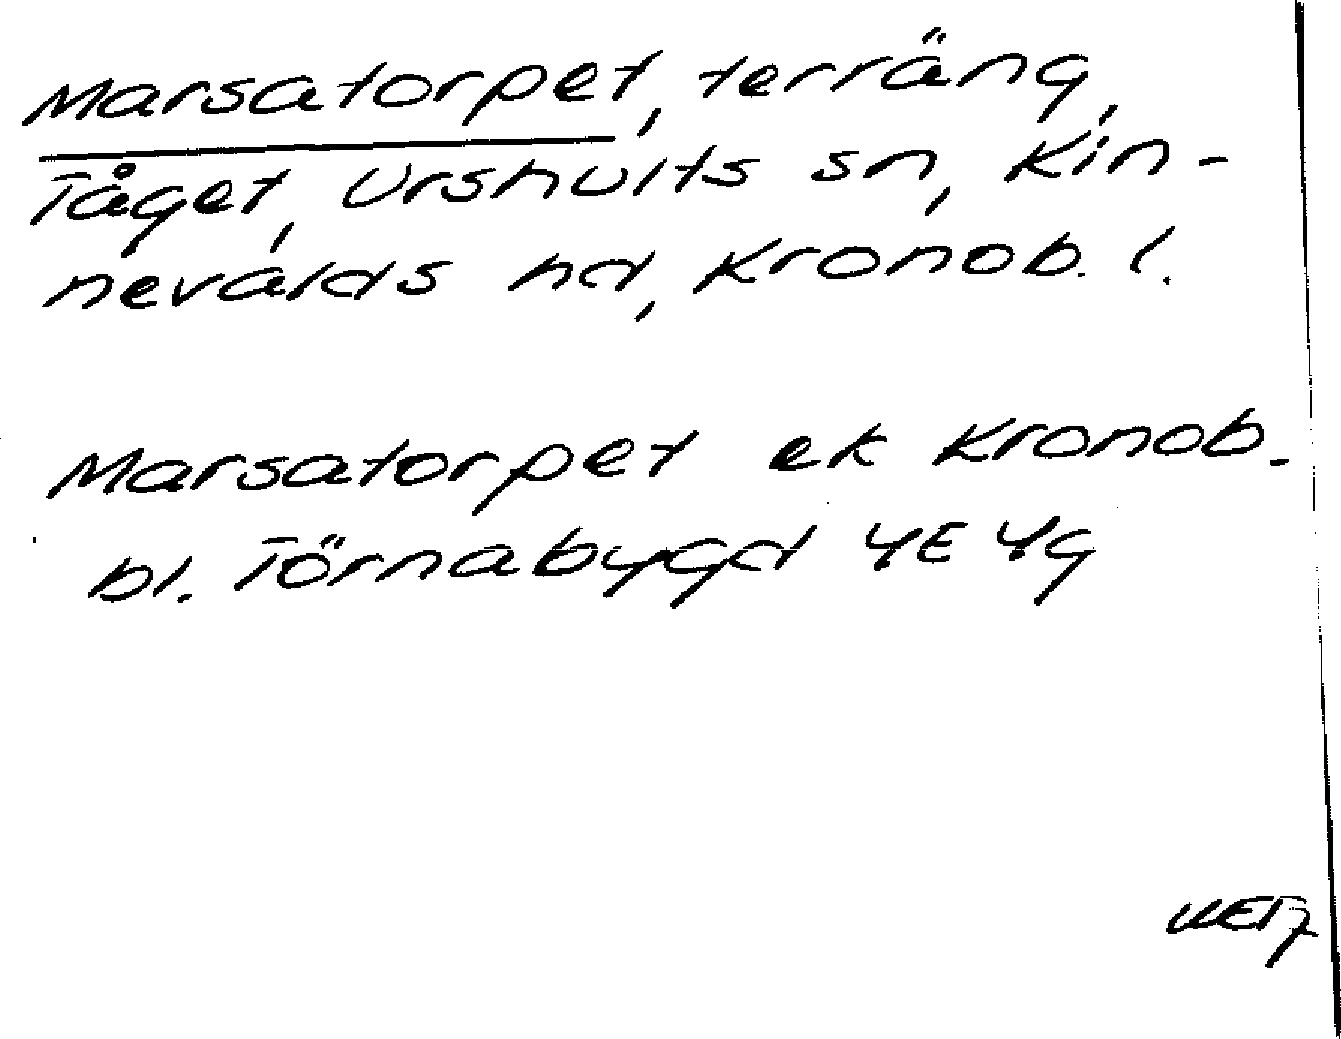 Marsatorpet, terräng,
Tåget, Urshults sn, Kin-
nevalds hd, Kronob. l.
Marsatorpet ek Kronob.
bl. Törnabygd 4E 4g